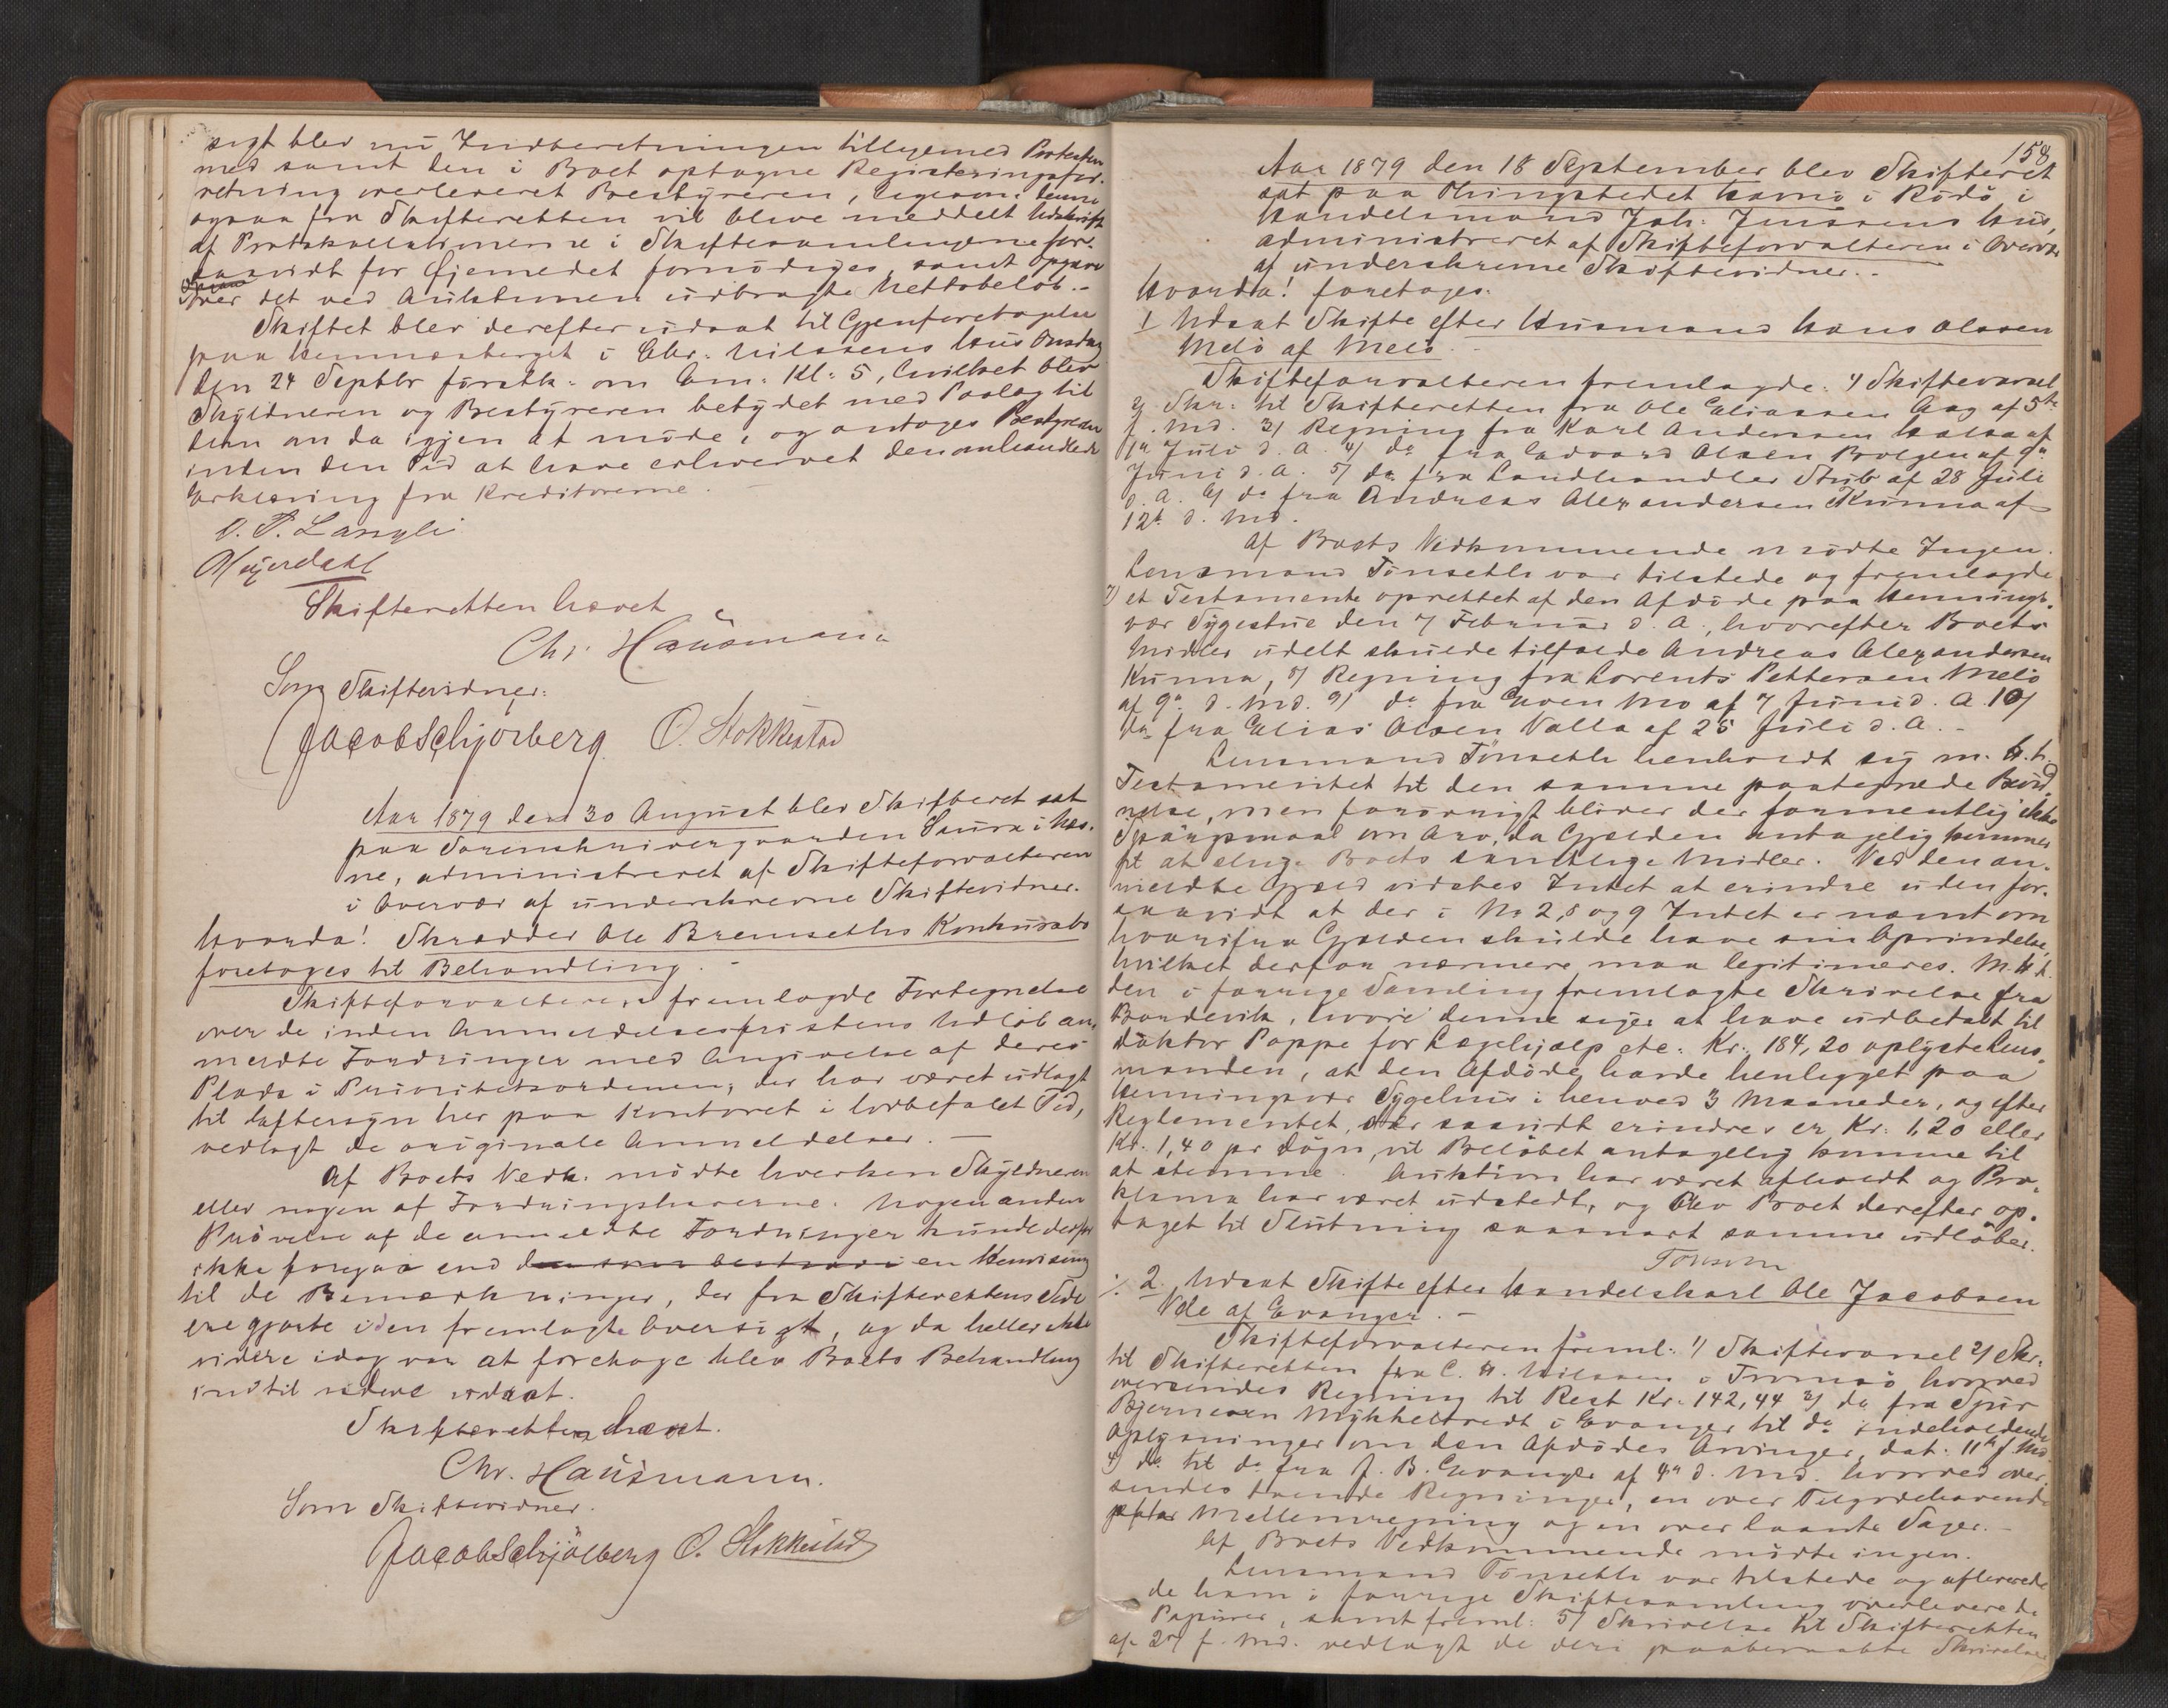 sigt blev nu Indberetningen tilligemed Protesten
med samt den i Boet optagne Registeringsfor-
retning overleveret Bestyreren, ligesom denne
ogsaa fra Skifteretten vil blive meddelt Udskrift
af Protokollationerne i Skiftesamlingerne for-
saavidt for Øjemedet fornødiges, samt Opgave
over det ved Auktionen udbragte Nettobeløb.-
Skiftet blev derefter udsat til Gjenforetagelse
paa Hemnesberget i Chr. Nilssens Hus Onsdag
den 24 Septbr førstk. om Em. Kl. 5, hvilket blev
Skyldneren og Bestyreren betydet med Paalæg til
dem om da igjen at møde, og antoges Bestyreren
inden den Tid at have erhvervet den omhandlede
Erklæring fra Kreditorerne.-
O. P. Langli
Mejerdahl
Skifteretten hævet
Chr. Hausmann
Som Skiftevidner:
Jacob Schjølberg O. Stokkestad
Aar 1879 den 30 August blev Skifteret sat
paa Sorenskrivergaarden Saura i Næs-
ne, administreret af Skifteforvalteren
i Overvær af underskrevne Skiftevidner.
Hvorda! Skrædder Ole Bremseths Konkursbo
foretages til Behandling.-
Skifteforvalteren fremlagde Fortegnelse
over de inden Anmeldelsesfristens Udløb an-
meldte Fordringer med Angivelse af deres
Plads i Prioritetsordenen, der har været udlagt
til Eftersyn her paa Kontoret i lovbefalet Tid,
vedlagt de originale Anmeldelser.-
Af Boets Vedk. mødte hverken Skyldneren
eller nogen af Fordringshaverne. Nogen anden
Prøvelse af de anmeldte Fordringer kunde derfor
ikke foregaa end den som bestaar i en Henvisning
til de Bemærkninger, der fra Skifterettens Side
ere gjorte i den fremlagte Oversigt, og da heller ikke
videre idag var at foretage blev Boets Behandling
indtil videre udsat.
Skifteretten hævet.
Chr. Hausmann.
Som Skiftevidner.
Jacob Schjølberg O. Stokkestad
158
Aar 1879 den 18 September blev Skifteret
sat paa Thingstedet Havnø i Rødø i
Handelsmand Joh: Jenssens Hus,
administreret af Skifteforvalteren i Overvær
af underskrevne Skiftevidner.-
Hvorda! foretages.
1 Udsat Skifte efter Husmand Hans Olosen
Melø af Melø.-
Skifteforvalteren fremlagde: 1/ Skiftevarsel
2/ Skr. til Skifteretten fra Ole Eliassen Aag af 5te
f. Md. 3/ Regning fra Karl Andersen Halsa af
1ste Juli d. A. 4/ do fra Edvard Olsen Bolgen af 9de
Juni d. A. 5/ do fra Landhandler Stub af 28 Juli
d. A. 6/ do fra Andreas Alexandersen Kunna af
12te d. Md.
Af Boets Vedkommende mødte Ingen.
Lensmand Tønseth var tilstede og fremlagde
7/ et Testamente oprettet af den Afdøde paa Hennings-
vær Sygestue den 7 Februar d. A., hvorefter Boets
Midler udelt skulde tilfalde Andreas Alexandersen
Kunna, 8/ Regning fra Lorents Pettersen Melø
af 9de d. Md. 9/ do fra Even Mo af 7 Juni d. A. 10/
do fra Elias Olsen Valla af 25 Juli d. A.-
Lensmand Tønseth henholdt sig m. H. t.
Testamentet til den samme paategnede Bevid-
nelse, men forøvrigt bliver der formentlig ikke
Spørgsmaal om Arv, da Gjælden antagelig kommer
til at sluge Boets samtlige Midler. Ved den an-
meldte Gjæld vidstes Intet at erindre uden for-
saavidt at der i No 2, 8 og 9 Intet er nævnt om
hvorifra Gjælden skulde have sin Oprindelse,
hvilket derfor nærmere maa legitimeres. M. H. t.
den i forrige Samling fremlagte Skrivelse fra
Bondevik, hvori denne siger at have udbetalt til
Doktor Poppe for Lægehjælp etc. Kr. 184,20 oplyste Lens-
manden, at den Afdøde havde henligget paa
Henningsvær Sygehus i henved 3 Maaneder, og efter
Reglementet, der saavidt erindres er Kr. 1,20 eller
Kr. 1,40 pr Døgn, vil Beløbet antagelig komme til
at stemme. Auktion har været afholdt og Pro-
klama har været udstedt, og blev Boet derefter op-
taget til Slutning saasnart samme udløber.
2. Udsat Skifte efter Handelskarl Ole Jacobsen
Vde af Evanger.-
Skifteforvalteren freml: 1/ Skiftevarsel 2/ Skr.
til Skifteretten fra C. H. Nilssen i Tromsø hvorved
oversendes Regning til Rest Kr. 142,44 3/ do fra Sjur
Bjørnesen Mykkeltvedt i Evanger til do indeholdende
Oplysninger om den Afdødes Arvinger, dat. 11te f. Md.
4/ do til do fra J. B. Evanger af 4de d. Md. hvorved over-
sendes tvende Regninger, en over Tilgodehavende
efter Mellemregning og en over laante Sager.-
Af Boets Vedkommende mødte ingen.
Lensmand Tønseth var tilstede og afleverede
de ham i forrige Skiftesamling overleverede
Papirer, samt freml: 5/ Skrivelse til Skifteretten
af 27 f. Md. vedlagt de deri paaberaabte Skrivelser